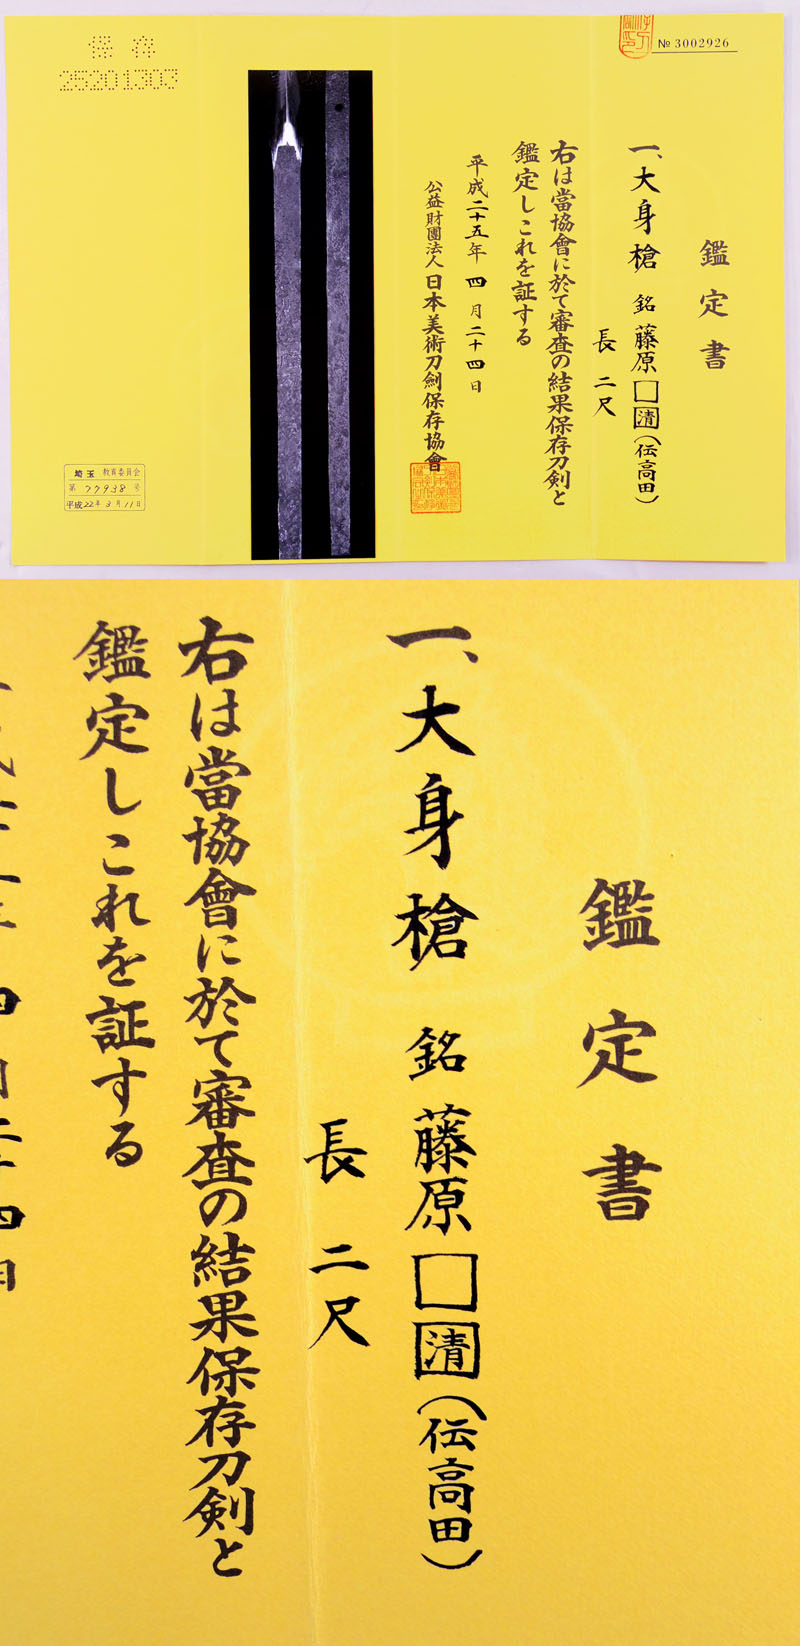 № 3002926
鑑定書
一、大身槍 銘 藤原□清(伝高田)
長 二尺
右は當協會に於て審査の結果保存刀剣と
鑑定しこれを証する
平成二十五年 四月二十四日
公益財團法人 日本美術刀劍保存協會
保存
25201303
埼玉 教育委員会
第 77938 号
平成22年3月11日
鑑定書
一、大身槍 銘 藤原□清(伝高田)
長 二尺
右は當協會に於て審査の結果保存刀剣と
鑑定しこれを証する